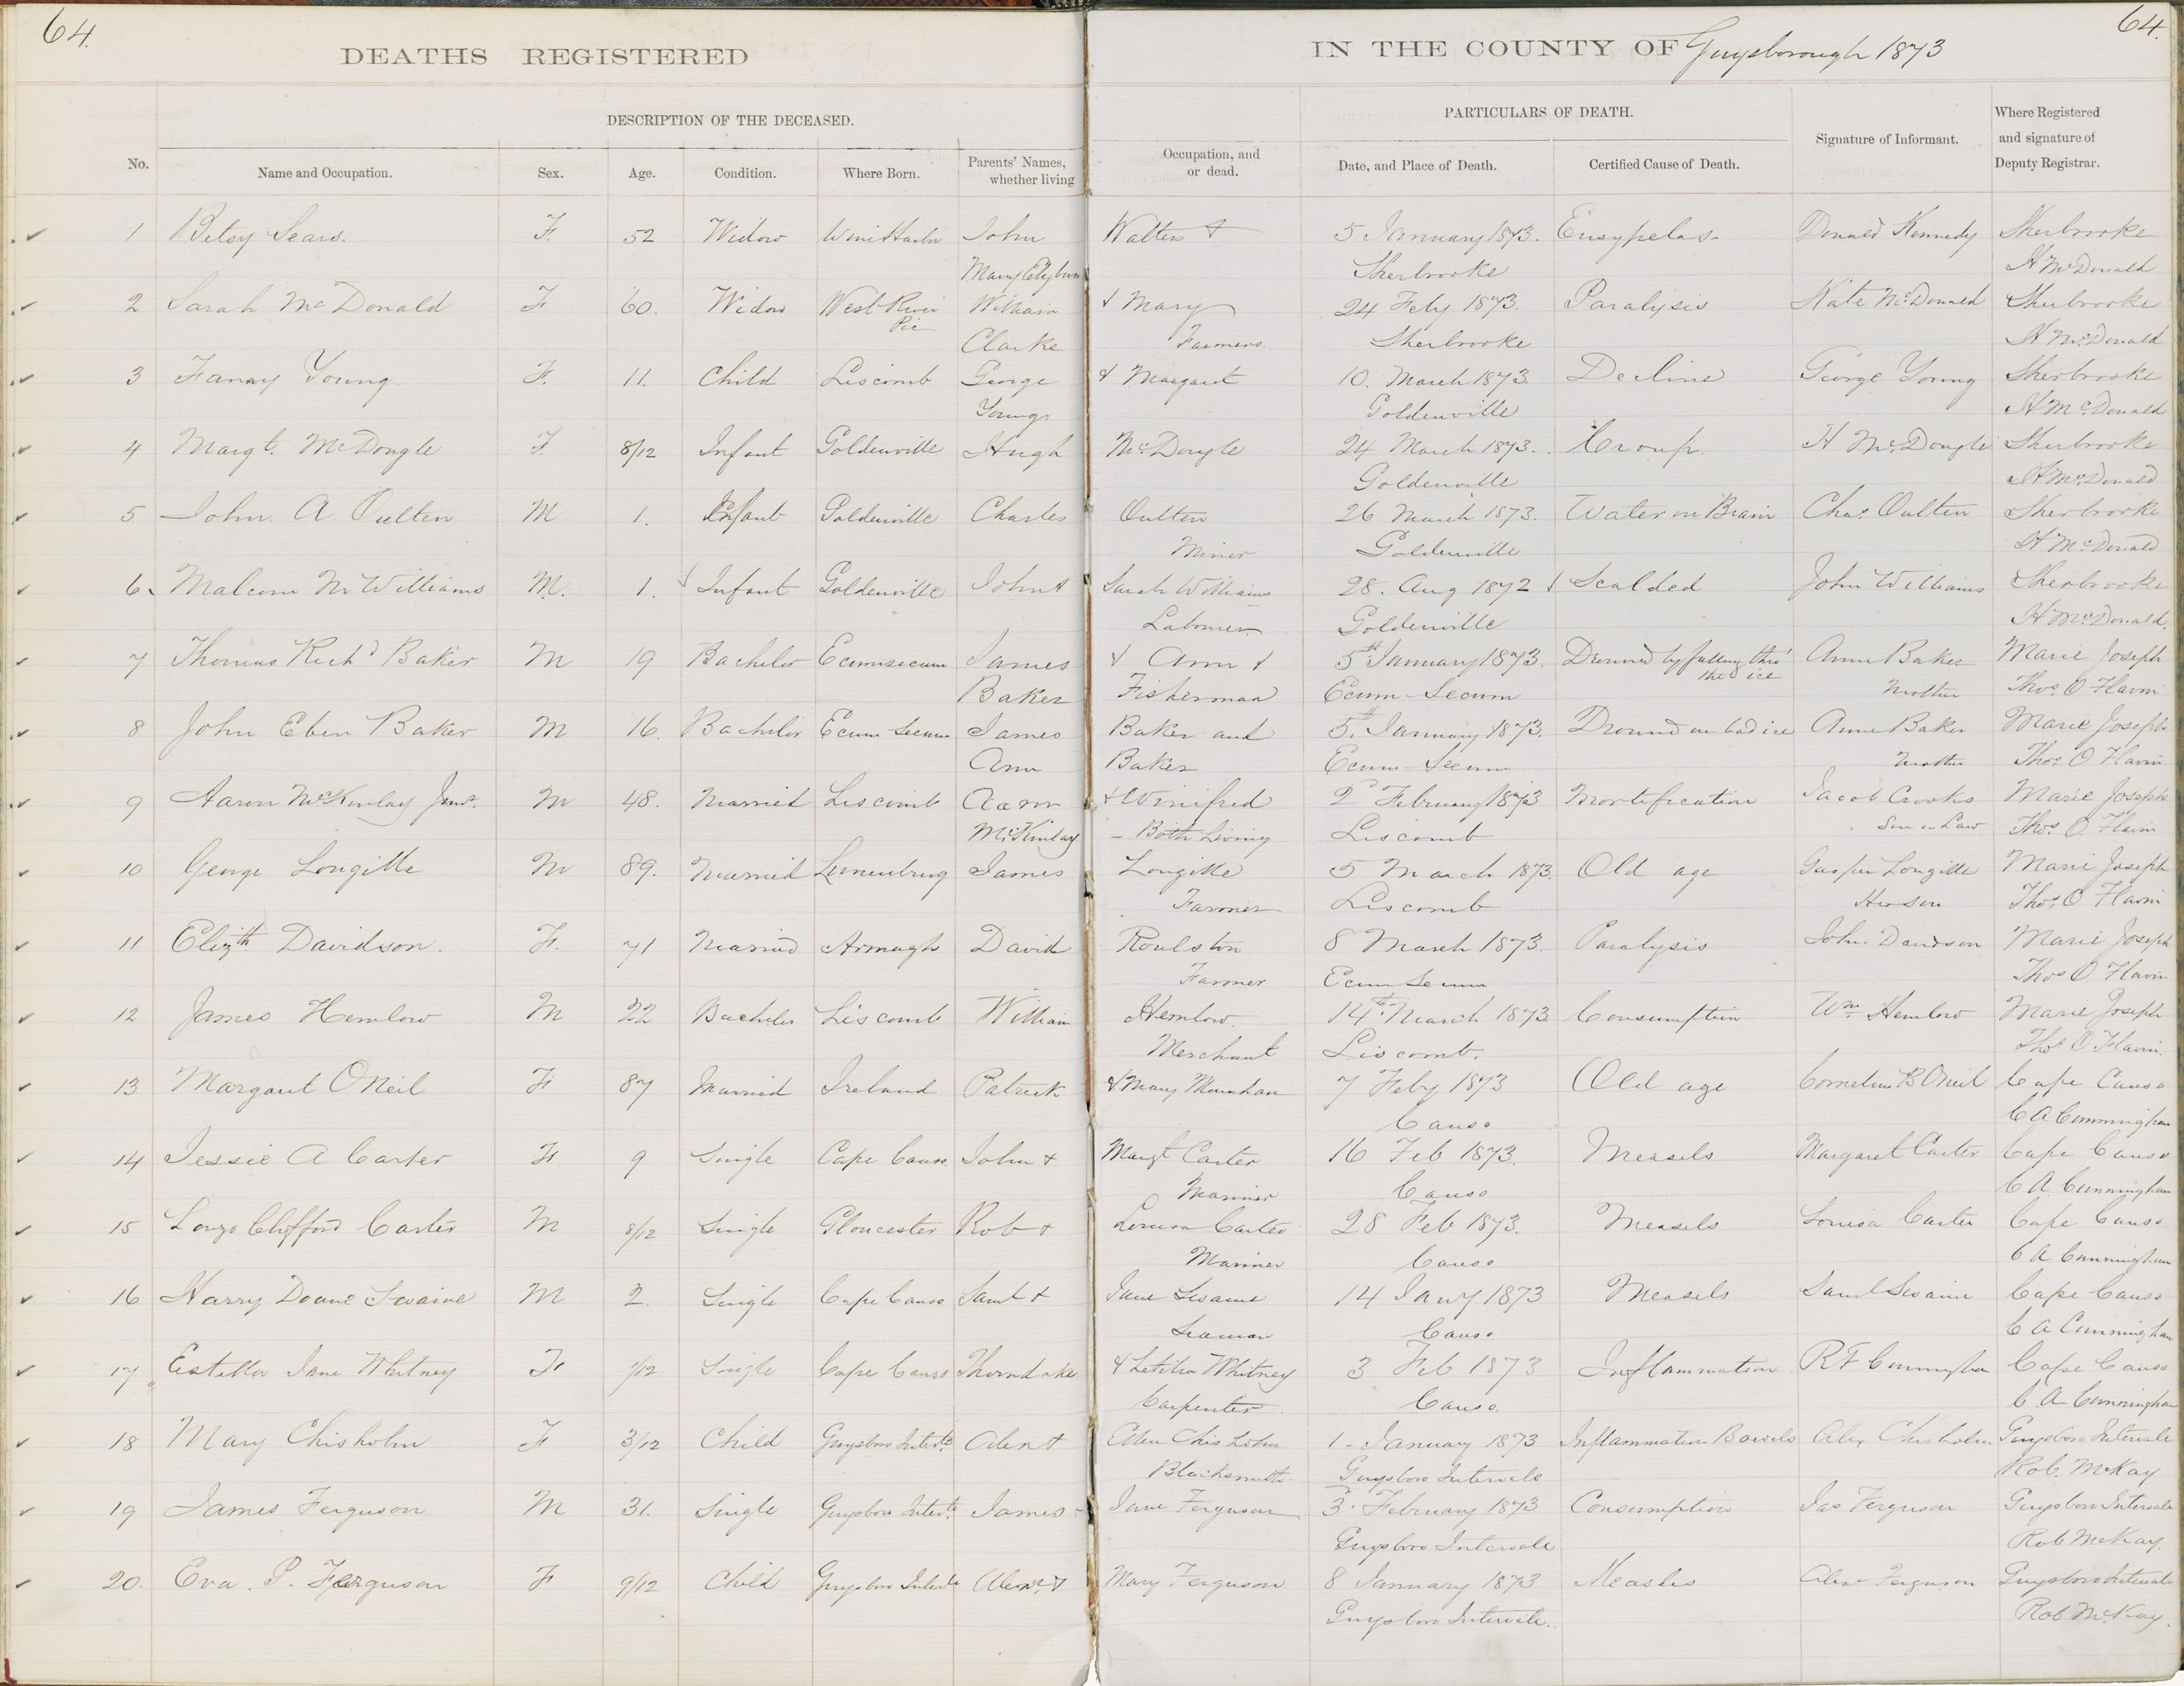 64.
64.
DEATHS REGISTERED
IN THE COUNTY OF Guysborough 1873
DESCRIPTION OF THE DECEASED.
PARTICULARS OF DEATH.
No.
Name and Occupation.
Sex.
Age.
Condition.
Where Born.
Parents' Names, whether living
Occupation, and or dead.
Date, and Place of Death.
Certified Cause of Death.
Signature of Informant.
Where Registered and signature of Deputy Registrar.
1 Betsy Sears. F. 52 Widow Wine Harbr John Walters & 5 January 1873. Erisypelas Donald Kennedy Sherbrooke
Mary Sherbrooke H McDonald
2 Sarah McDonald F 60. Widow West River William & Mary 24 Feby 1873. Paralysis Kate McDonald Sherbrooke
Pic Clarke Farmers. Sherbrooke H McDonald
3 Fanny Young F. 11. Child Liscomb George & Margaret 10. March 1873. Decline George Young Sherbrooke
Young Goldenville H McDonald
4 Margt. McDougle F 8/12 Infant Goldenville Hugh McDougle 24 March 1873. Croup. H McDougle Sherbrooke
Goldenville H McDonald
5 John A Oulten M 1. Infant Goldenville Charles Oulten 26 March 1873. Water on Brain Chas. Oulten Sherbrooke
Miner Goldenville H McDonald
6 Malcom Williams M. 1. Infant Goldenville John & Sarah Williams 28. Aug 1872 Scalded John Williams Sherbrooke
Labourer Goldenville H McDonald.
7 Thomas Richd Baker M 19 Bachelor Ecumsecum James & Ann & 5th January 1873. Drowned by falling thro' Anne Baker Marie Joseph
the ice
Baker Fisherman Ecum-Secum Mother Thos. O Flavin
8 John Eben Baker M 16. Bachelor Ecum Secum James Baker and 5th January 1873. Dround on bad ice Anne Baker Marie Joseph
Ann Baker Ecum-Secum Mother Thos. O Flavin
9 Aaron McKinlay Junr. M 48. Married Liscomb Aaron & Winifred 2d February 1873 Mortification Jacob Crooks Marie Joseph
McKinlay - Both Living Liscomb Son in Law Thos. O. Flavin
10 George Longille M 89. Married Lunenburg James Longille 5 March 1873. Old age Gasper Longille Marie Joseph
Farmer Liscomb His son Thos. O Flavin
11 Elizth. Davidson. F. 71 Married Armagh David Roulston 8 March 1873. Paralysis John. Davidson Marie Joseph
Farmer Ecum Secum Thos O. Flavin
12 James Hemlow M 22 Bachelor Liscomb William Hemlow. 14th. March 1873. Consumption Wm. Hemlow Marie Joseph
Merchant Liscomb. Thos O Flavin.
13 Margaret ONeil F 87 Married Ireland Patrick & Mary 7 Feby 1873 Old age Cornelius B ONeil Cape Canso
Canso C A Cunningham
14 Jessie A Carter F 9 Single Cape Canso. John & Margt Carter 16 Feb 1873. Measels Margaret Carter Cape Canso
Mariner Canso C A Cunningham
15 Clifford Carter M 8/12 Single Gloucester Rob & Louisa Carter 28 Feb 1873. Measels Louisa Carter Cape Canso
Mariner Canso C A Cunningham
16 Harry Doane Swaine M 2 Single Cape Canso Saml & Jane Swaine 14 Jany 1873 Measels Saml Swaine Cape Canso
Seaman Canso C A Cunningham
17 Estella Jane Whitney F 1/12 Single Cape Canso Thorndake & Letitia Whitney 3 Feb 1873 Inflammation R F Cunningham Cape Canso
Carpenter Canso. C A Cunningham
18 Mary Chisholm F 3/12 Child Guysboro Intervle Alexr & Ellen Chisholm 1 - January 1873 Inflammation Bowels Alex Chisholm Guysboro Intervale
Blacksmith Guysboro Intervale Rob. McKay
19 James Ferguson M 31. Single Guysboro Intervle James & Jane Ferguson 3. February 1873 Consumption Jas Ferguson Guysboro Intervale
Guysboro Intervale Rob McKay.
20. Eva. P. Ferguson F 9/12 Child Guysboro Intervle Alexr. & Mary Ferguson 8 January 1873 Measles Alexr Ferguson Guysboro Intervale
Guysboro Intervale. Rob McKay.